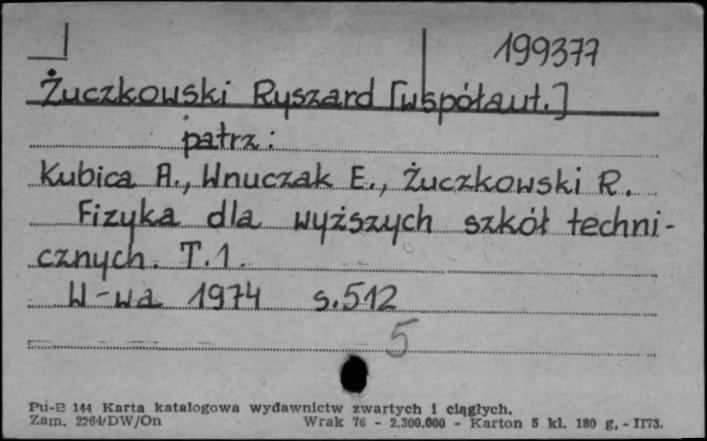 199377
Żuczkowski Ryszard [współaut.]
patrz:
Kubica A., Wnuczak E., Żuczkowski R.
Fizyka dla wyższych szkół techni-
cznych. T.1.
W-wa 1974 s.512
5
Pu-B 144 Karta katalogowa wydawnictw zwartych i ciągłych.
Zam. 2264/DW/On Wrak 76 - 2.300.000 - Karton 5 kl. 180 g, - II73.